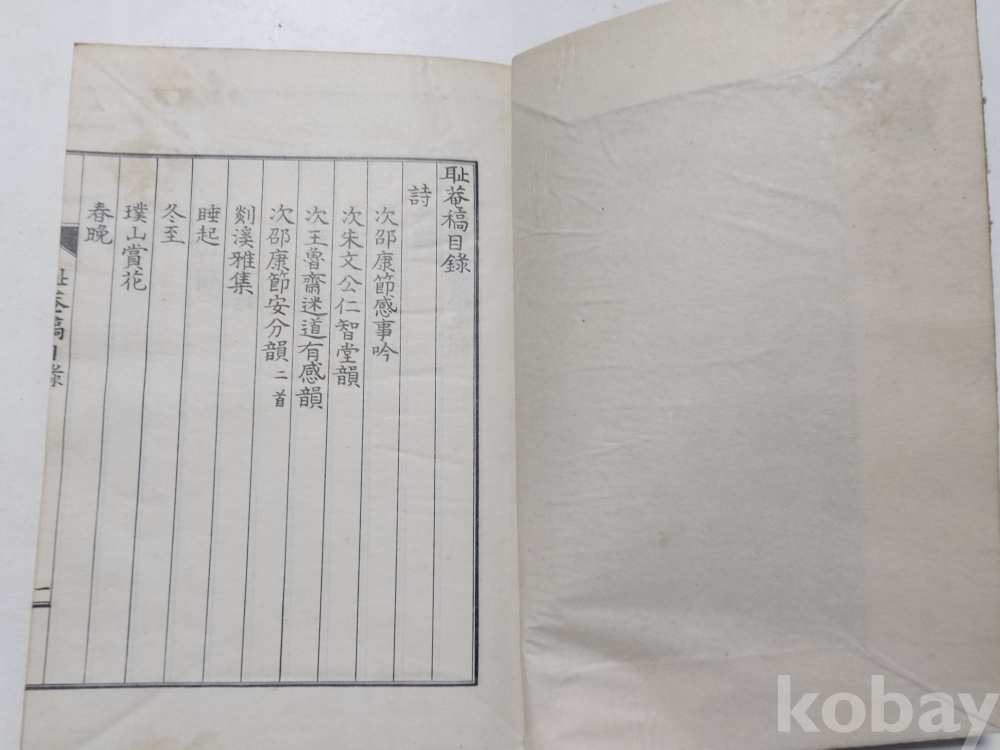 耻菴稿目錄
詩
次邵康節感事吟
次朱文公仁智堂韻
次王魯齋迷道有感韻
次邵康節安分韻 二首
剡溪雅集
睡起
冬至
璞山賞花
春晚
耻菴稿目錄
一
kobay